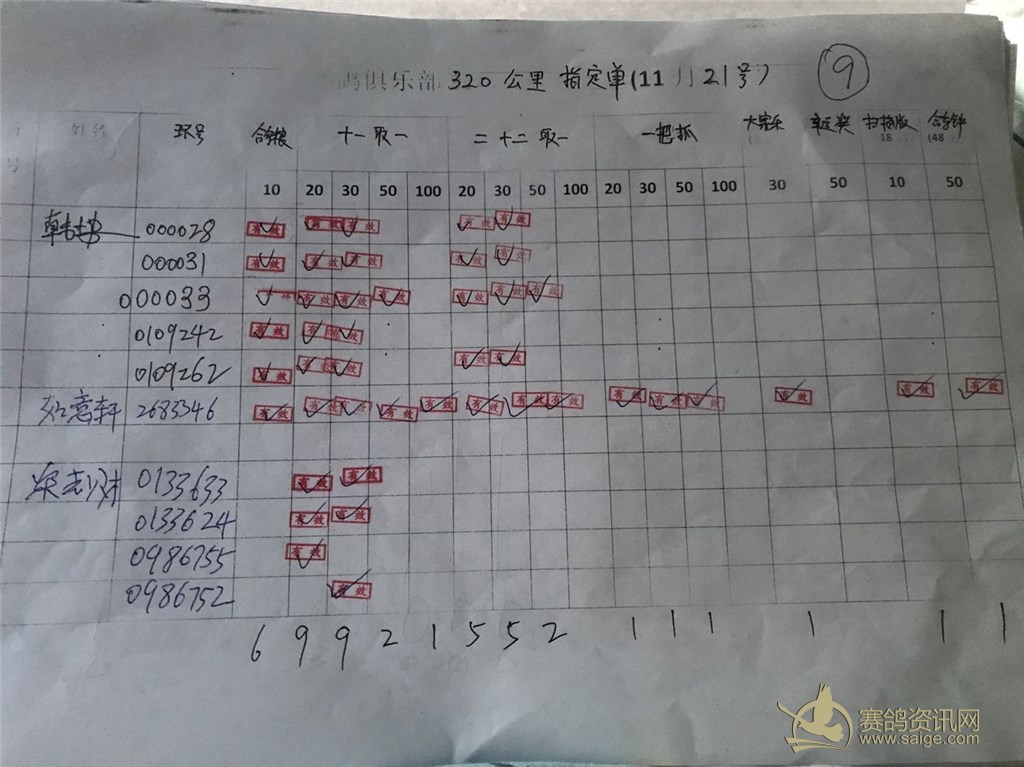 鸽俱乐部 320 公里 指定单(11月21号) 9
环号 十一取一 二十二取一 一把抓
18 (48
10 20 30 50 100 20 30 50 100 20 30 50 100 30 50 10 50
000028 有效 有效 有效 有效 有效
000031 有效 有效 有效 有效 有效
000033 有效 有效 有效 有效 有效 有效 有效
0109242 有效 有效 有效
0109262 有效 有效 有效 有效 有效
如意轩 2683346 有效 有效 有效 有效 有效 有效 有效 有效 有效 有效 有效 有效 有效 有效
0133633 有效 有效
0133624 有效 有效
0986755 有效
0986752 有效
6 9 9 2 1 5 5 2 1 1 1 1 1 1
赛鸽资讯网
www.saige.com